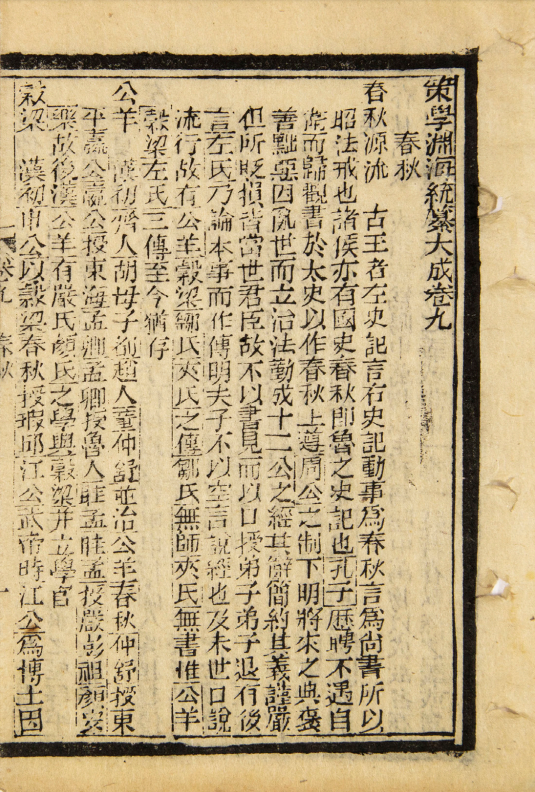 策學淵海統纂大成卷九
春秋
春秋源流 古王者左史記言右史記動事爲春秋言爲尚書所以
昭法戒也諸侯亦有國史春秋即魯之史記也孔子歷聘不遇自
衛而歸觀書於太史以作春秋上遵周公之制下明將來之典褒
善黜惡因亂世而立治法勒成十二公之經其辭簡約其義謹嚴
但所貶損皆當世君臣故不以書見而以口授弟子弟子退有後
言左氏乃論本事而作傳明夫子不以空言說經也及末世口說
流行故有公羊穀梁鄒氏夾氏之傳鄒氏無師夾氏無書惟公羊
穀梁左氏三傳至今猶存
公羊 漢初齊人胡毋子都趙人董仲舒並治公羊春秋仲舒授東
平嬴公嬴公授東海孟卿孟卿授魯人眭孟眭孟授嚴彭祖顏安
樂故後漢公羊有嚴氏顏氏之學與穀梁并立學官
穀梁 漢初申公以穀梁春秋授瑕邱江公武帝時江公爲博士因
卷九 春秋 一